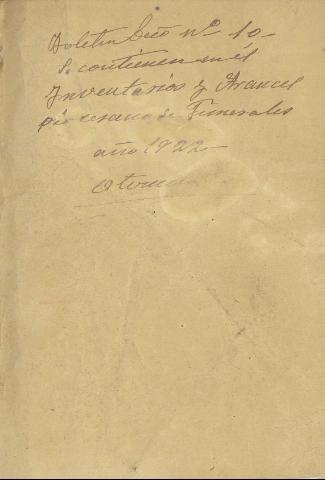 Boletin Ecco nº 10-
Se contienen en él
Inventarios y Arancel
diocesano de Funerales
año 1922-